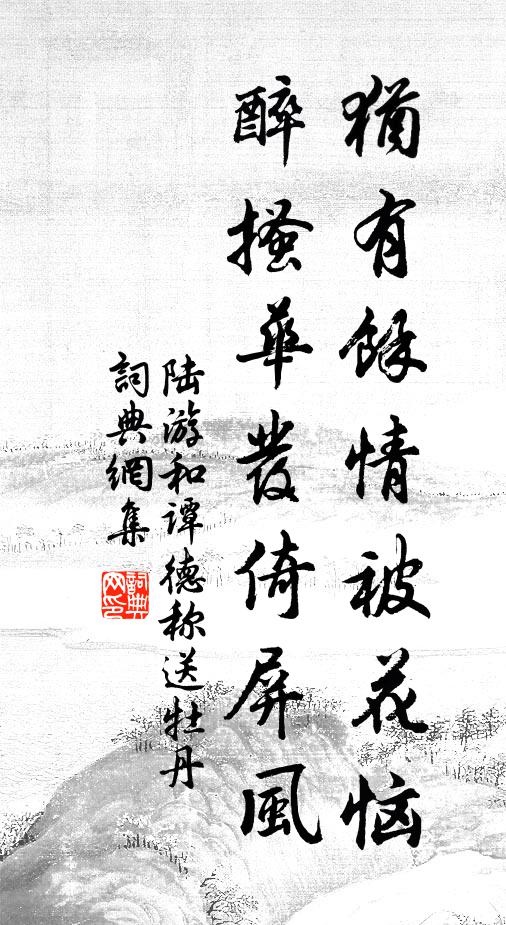 猶有餘情被花恼
醉搔華發倚屏風
陆游和谭德称送牡丹
詞典網集
詞典網印